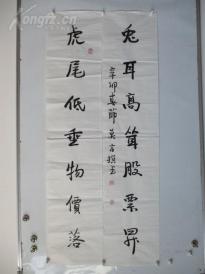 兎耳高聳股票昇
辛卯春節
虎尾低垂物價落